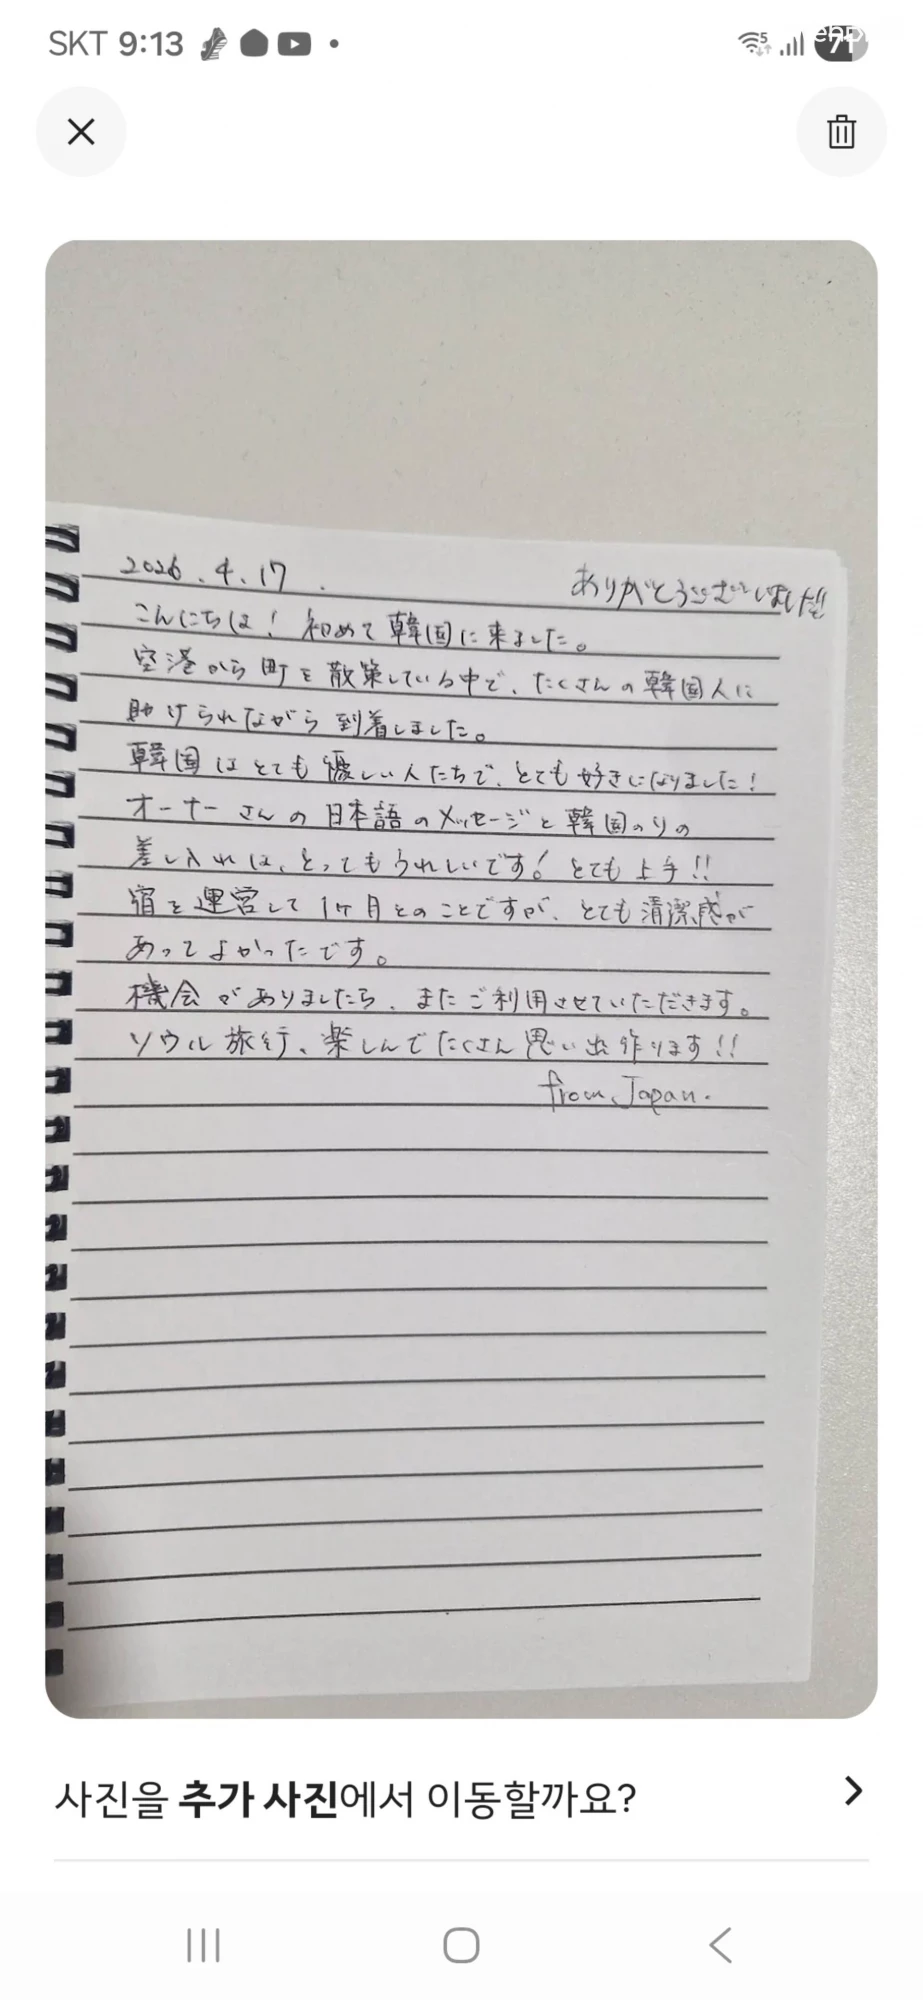 SKT 9:13
2026.4.17
ありがとうございました!!
こんにちは! 初めて韓国に来ました。
空港から町を散策している中で、たくさんの韓国人に
助けられながら到着しました。
韓国はとても優しい人たちで、とても好きになりました!
オーナーさんの日本語のメッセージと韓国のりの
差し入れは、とってもうれしいです! とても上手!!
宿を運営して1ヶ月とのことですが、とても清潔感が
あってよかったです。
機会がありましたら、またご利用させていただきます。
ソウル旅行、楽しんでたくさん思い出作ります!!
from Japan.
사진을 추가 사진에서 이동할까요?